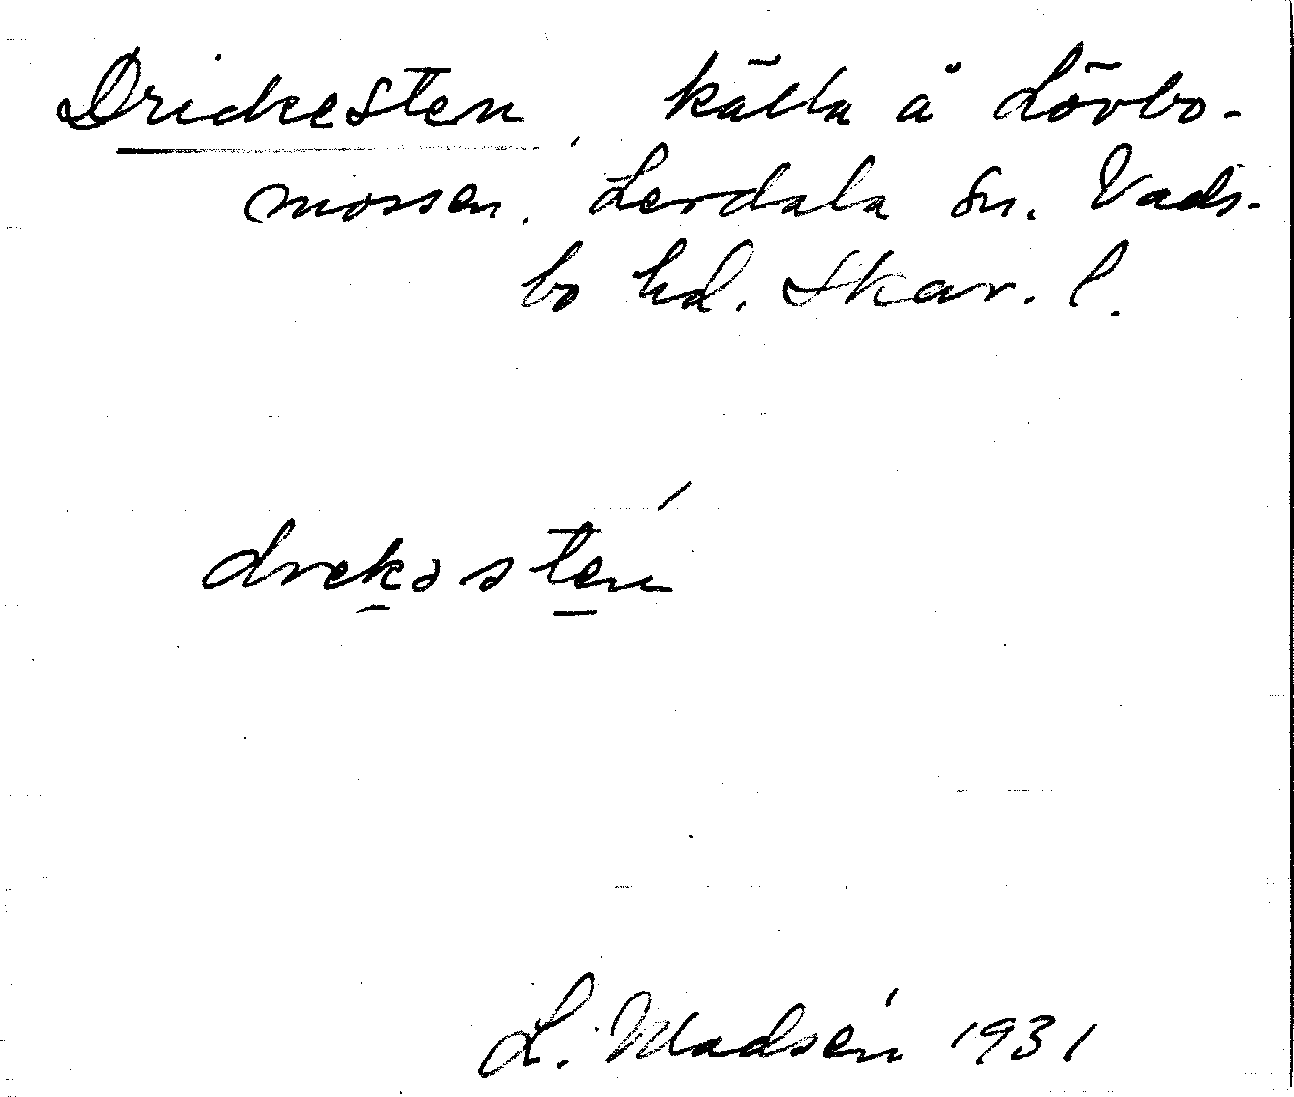 Drickesten, källa å Lövbo-
mossen. Lerdala sn. Vads-
bo hd. Skar. l.
drekəsten
L. Madsén 1931